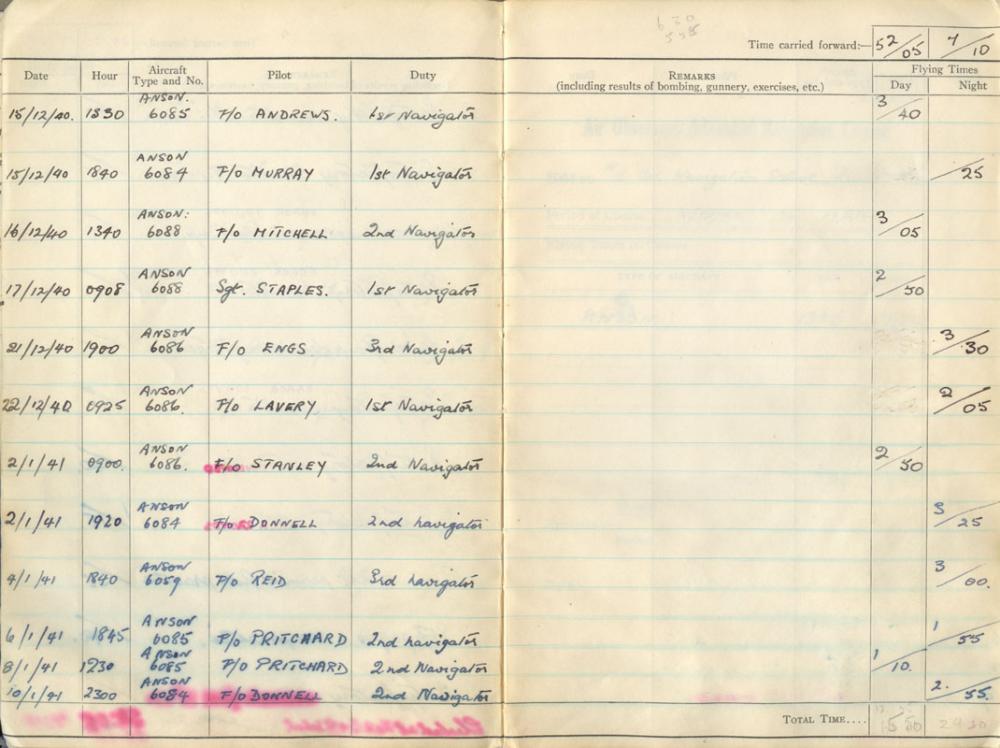 Time carried forward:— 52/05 7/10
Date Hour Aircraft Type and No. Pilot Duty REMARKS (including results of bombing, gunnery, exercises, etc.) Flying Times Day Night
15/12/40. 1330 ANSON. 6085 F/o ANDREWS. 1st Navigator 3/40
15/12/40 1840 ANSON 6084 F/o MURRAY 1st Navigator /25
16/12/40 1340 ANSON: 6088 F/o MITCHELL 2nd Navigator 3/05
17/12/40 0908 ANSON 6088 Sgt. STAPLES. 1st Navigator 2/50
21/12/40 1900 ANSON 6086 F/o ENGS 3rd Navigator 3/30
22/12/40 0925 ANSON 6086. F/o LAVERY 1st Navigator 2/05
2/1/41 0900. ANSON 6086. F/o STANLEY 2nd Navigator 2/50
2/1/41 1920 ANSON 6084 F/o DONNELL 2nd navigator 3/25
4/1/41 1840 ANSON 6059 F/o REID 3rd navigator 3/00.
6/1/41 1845 ANSON 6085 F/o PRITCHARD 2nd navigator 1/55
8/1/41 1230 ANSON 6085 F/o PRITCHARD 2nd Navigator 1/10.
10/1/41 2300 ANSON 6084 F/o DONNELL 2nd Navigator 2./55.
TOTAL TIME....